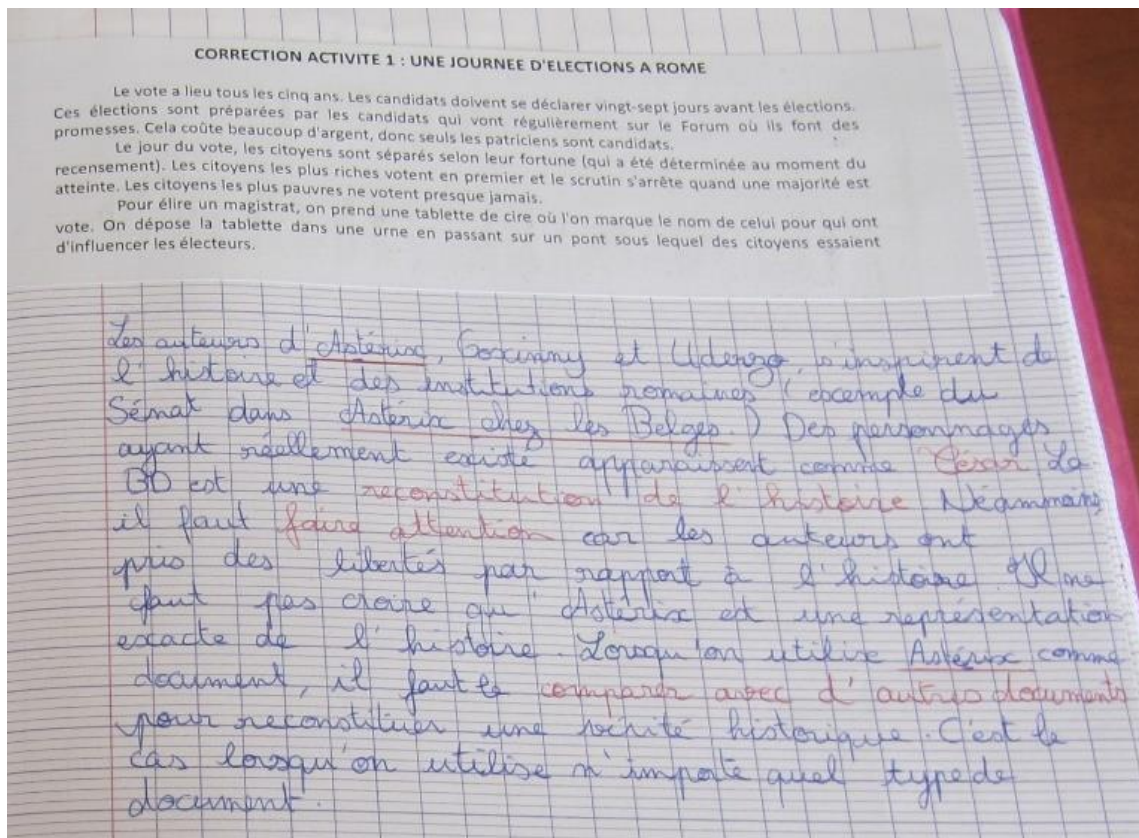 CORRECTION ACTIVITE 1 : UNE JOURNEE D'ELECTIONS A ROME
Le vote a lieu tous les cinq ans. Les candidats doivent se déclarer vingt-sept jours avant les élections.
Ces élections sont préparées par les candidats qui vont régulièrement sur le Forum où ils font des
promesses. Cela coûte beaucoup d'argent, donc seuls les patriciens sont candidats.
Le jour du vote, les citoyens sont séparés selon leur fortune (qui a été déterminée au moment du
recensement). Les citoyens les plus riches votent en premier et le scrutin s'arrête quand une majorité est
atteinte. Les citoyens les plus pauvres ne votent presque jamais.
Pour élire un magistrat, on prend une tablette de cire où l'on marque le nom de celui pour qui ont
vote. On dépose la tablette dans une urne en passant sur un pont sous lequel des citoyens essaient
d'influencer les électeurs.
Les auteurs d'Astérix, Goscinny et Uderzo, s'inspirent de
l'histoire et des institutions romaines (exemple du
Sénat dans Astérix chez les Belges.) Des personnages
ayant réellement existé apparaissent comme César La
BD est une reconstitution de l'histoire Néanmoins
il faut faire attention car les auteurs ont
pris des libertés par rapport à l'histoire. Il ne
faut pas croire qu'Astérix est une représentation
exacte de l'histoire. Lorsqu'on utilise Astérix comme
document, il faut le comparer avec d'autres documents
pour reconstituer une vérité historique. C'est le
cas lorsqu'on utilise n'importe quel type de
document.